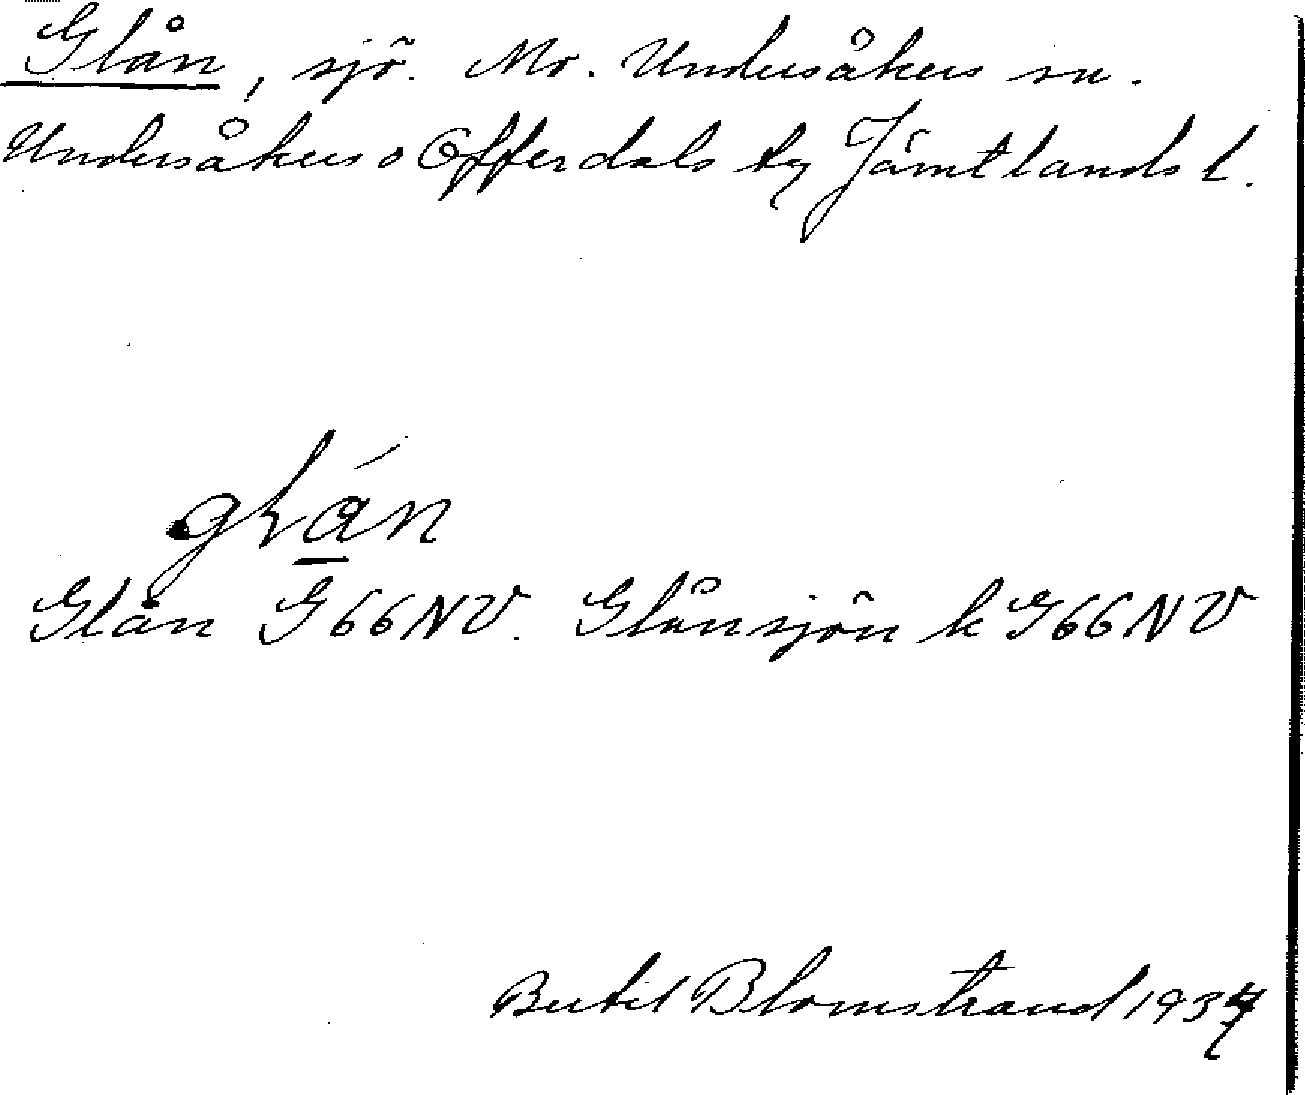 Glån, sjö. Mo. Undersåkers sn.
Undersåkers o Offerdals tg Jämtlands l.
glán
Glån G66NV. Glånsjön k G66NV
Bertil Blomstrand